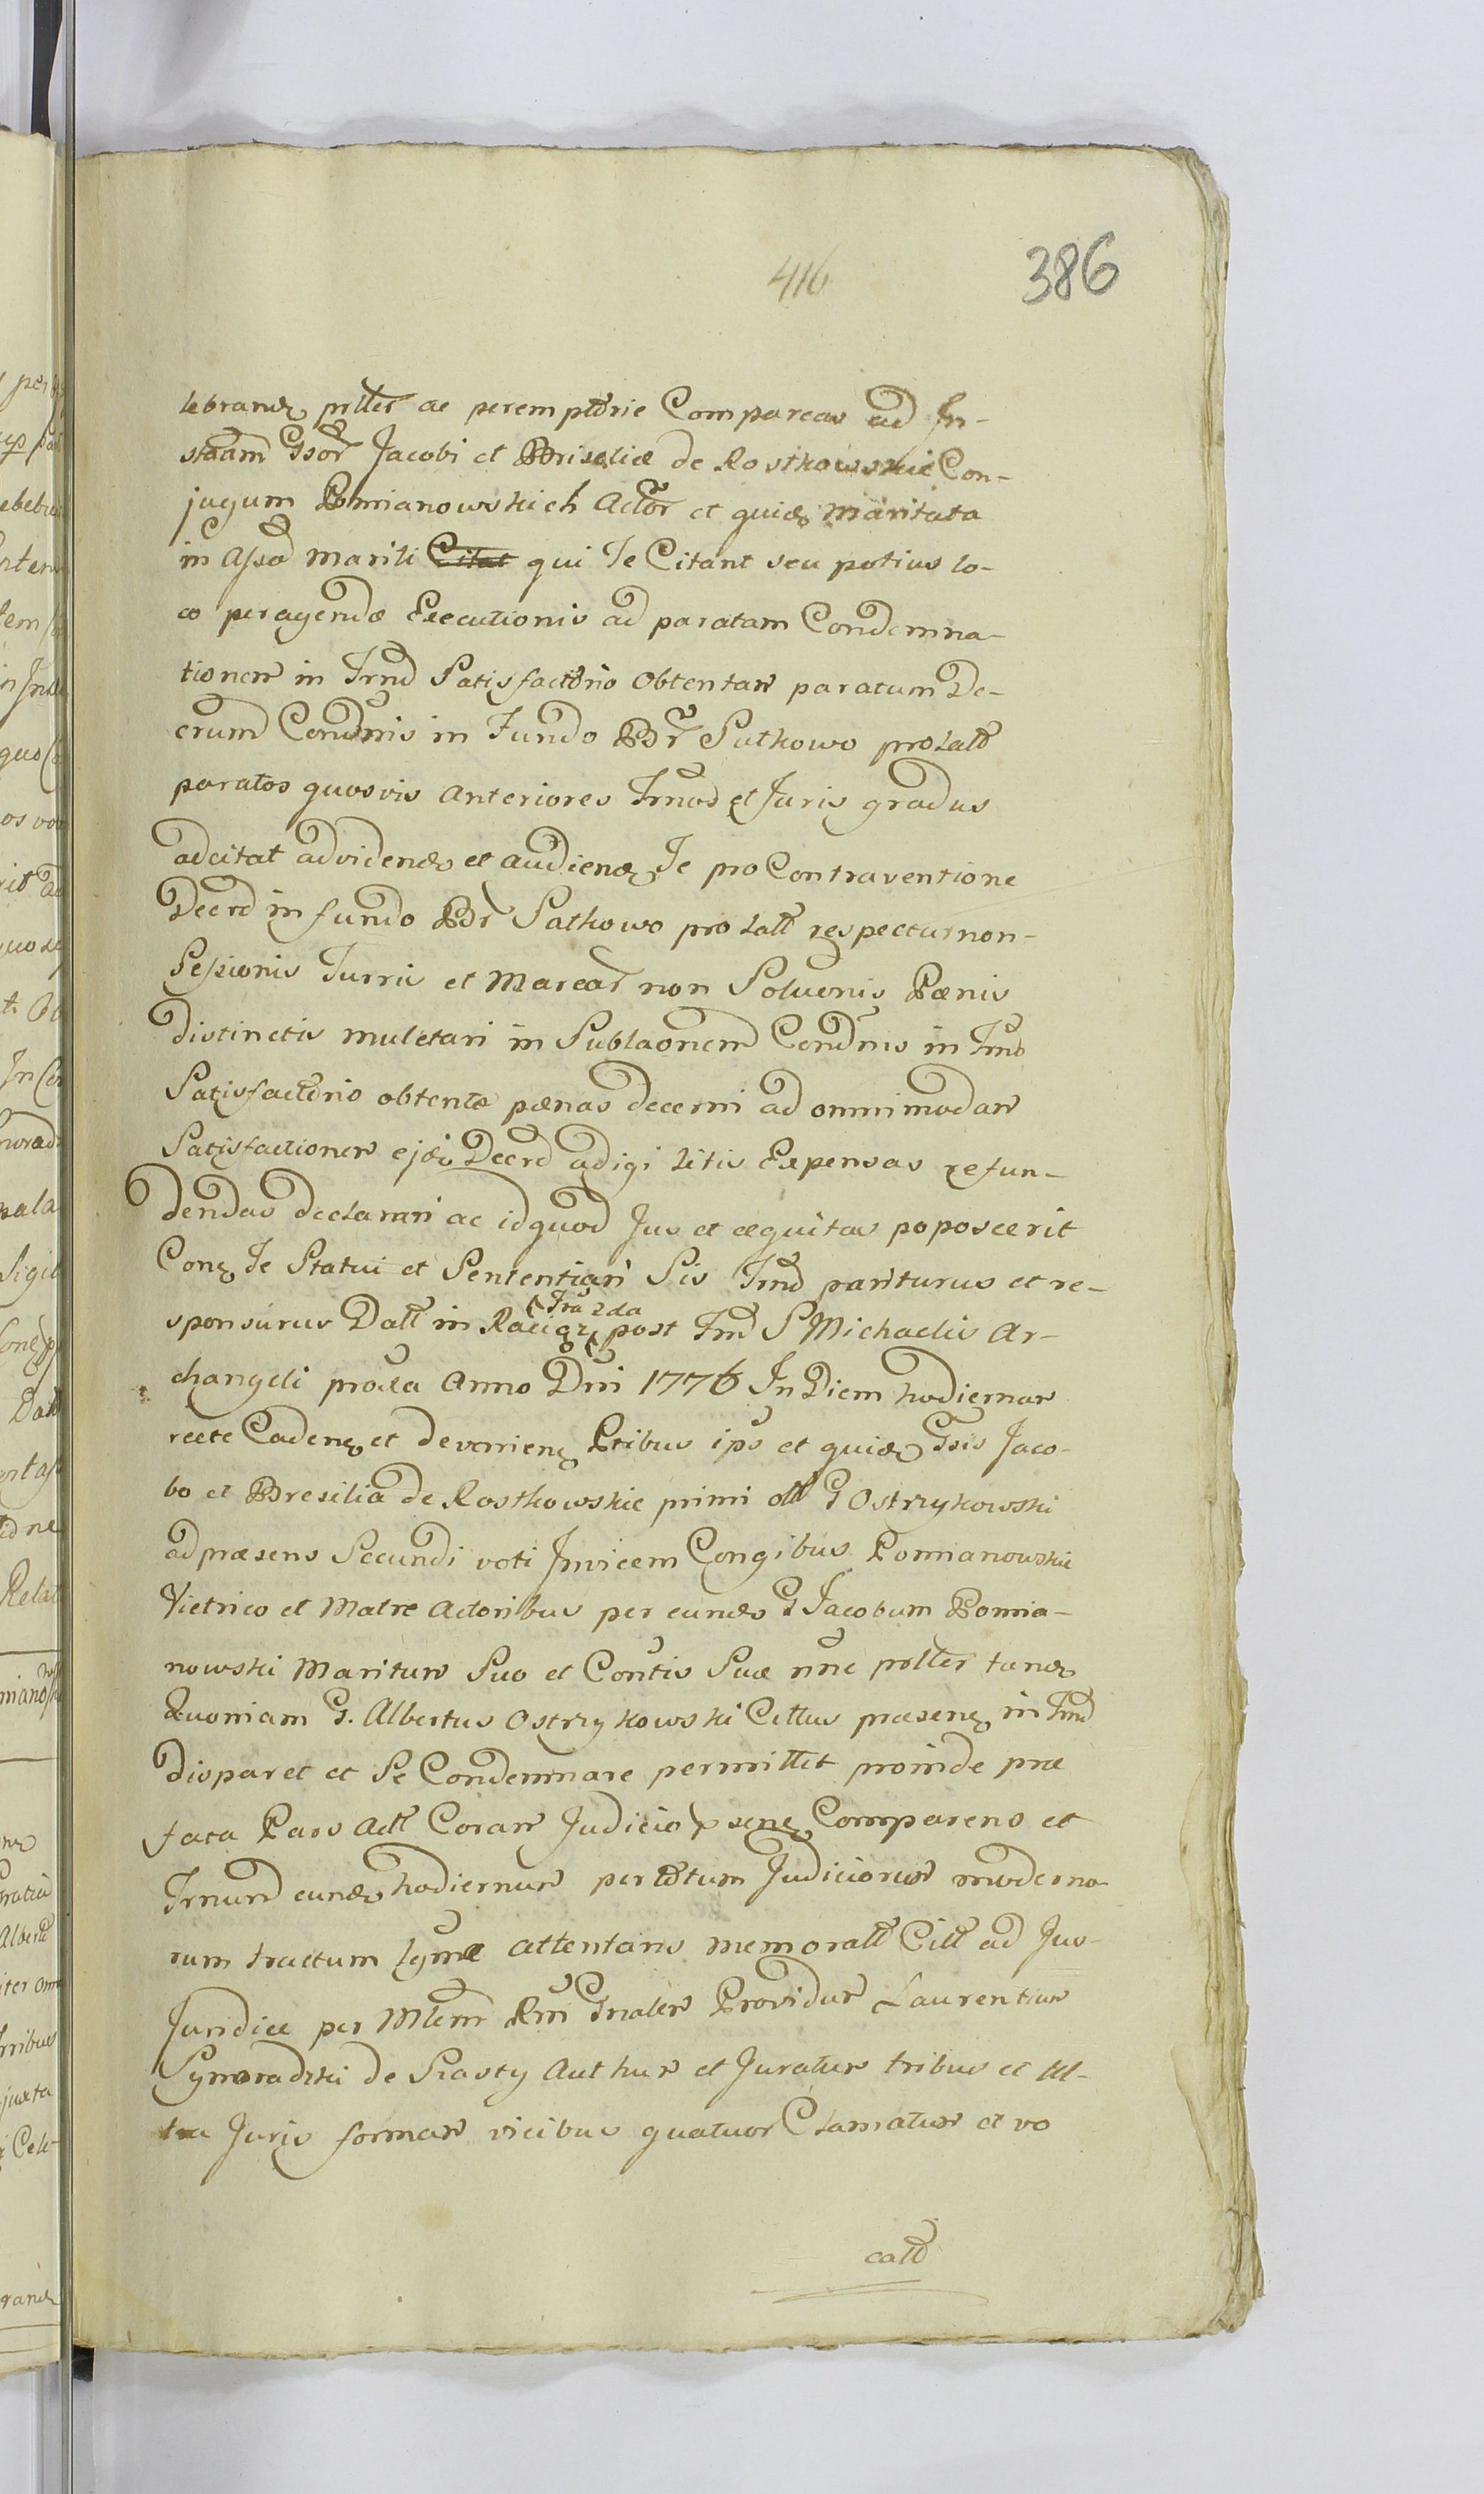 416 386
lebrand prlter ac peremptorie Compareas ad In-
staam Gsor Jacobi et Briseliæ de Rostkowskie Con-
jugum Pomianowskich Actor et quid maritata
in Assa Mariti Citat qui Te Citant seu potius lo-
co peragendæ Executionis ad paratam Condemna-
tionem in Trnd Satisfactorio Obtentam paratum De-
crum Condnis in Fundo Br Sutkowo prolatt
paratos quosvis anteriores Trnos et Juris gradus
adcitat ad vidend et audiend Te pro Contraventione
Decrd in fundo Br Sutkowo prolatt respectu non-
Sessionis Turris et Marcar non Soluonis Pænis
distinctis mulctari in Sublaonem Condnis in Trno
Satisfactorio obtentæ pænas decerni ad omnimodam
Satisfactionem ejsd Decrd adigi litis Expensas refun-
dendas declarari ac id quod Jus et æquitas poposcerit
Conq Te Statui et Sententiari Sis Trnd pariturus et re-
sponsurus Datt in Raciąz Fra 2da post Fm S Michaelis Ar-
changeli proxa Anno Dni 1776 In Diem hodiernam
recte Caden et devenien Ptibus ips et quid Gsis Jaco-
bo et Bresilia de Rostkowskie primi olt G Ostrzykowski
ad præsens Secundi voti Invicem Congibus Pomianowskie
Vietrico et Matre Actoribus per eund G Jacobum Pomia-
nowski Maritum Suo et Contis Suæ nne prlter tand
Quoniam G. Albertus Ostrzykowski Cittus præsen in Trnd
disparet et Se Condemnare permittit proinde præ
fata Pars Actt Coram Judicio psen Comparens et
Trnum eund hodiernum per totum Judiciorum moderno-
rum tractum lgme attentans memoratt Citt ad Jus
Juridice per Mlem Rm Gnalem Providum Laurentium
Symoradzki de Szasty Authum et Juratum tribus et ul-
tra Juris formam vicibus quatuor Clamatum et vo
catt